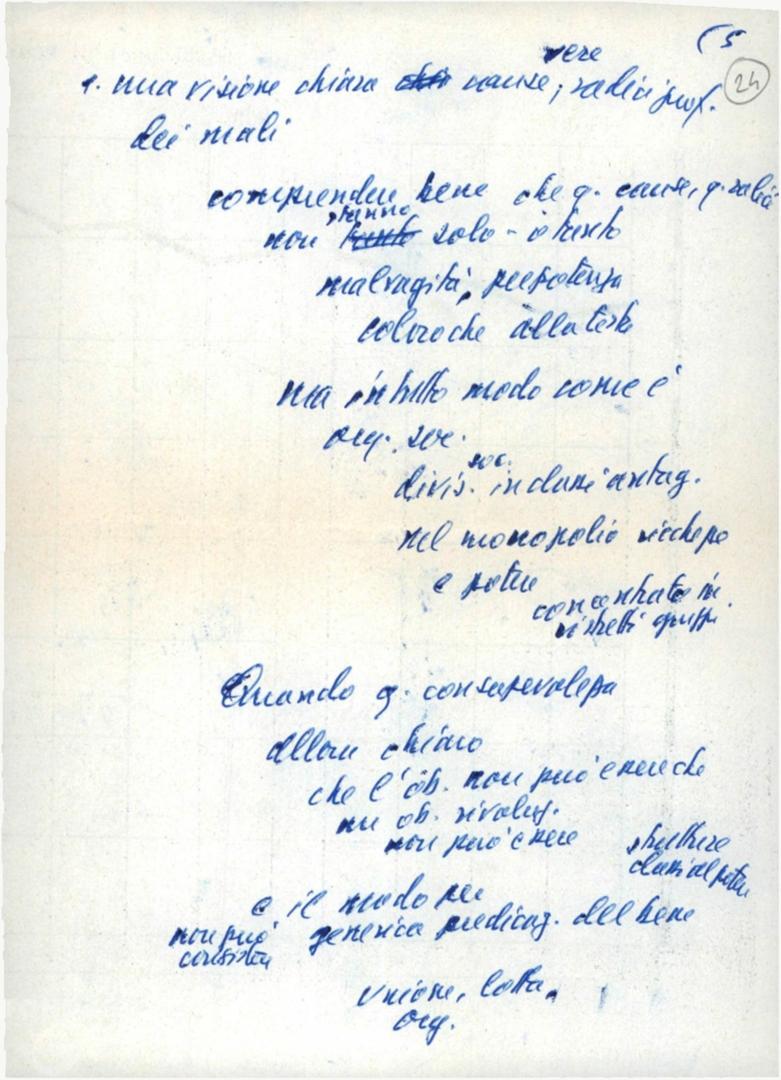 (5
24
vere
1. una visione chiara cause, radici prof.
dei mali
comprendere bene che q. cause, q. radici
stanno
non tanto solo - o tanto
malvagità, prepotenza
coloro che alla testa
ma in tutto modo come è
org. soc.
soc.
divis. in classi antag.
nel monopolio ricchezza
e potere
concentrato in
ristretti gruppi.
Quando q. consapevolezza
allora chiaro
che l'ob. non può essere che
un ob. rivoluz.
non può essere
strutture
classi al potere
e il modo per
non può generica predicaz. del bene
consistere
unione, lotta,
org.